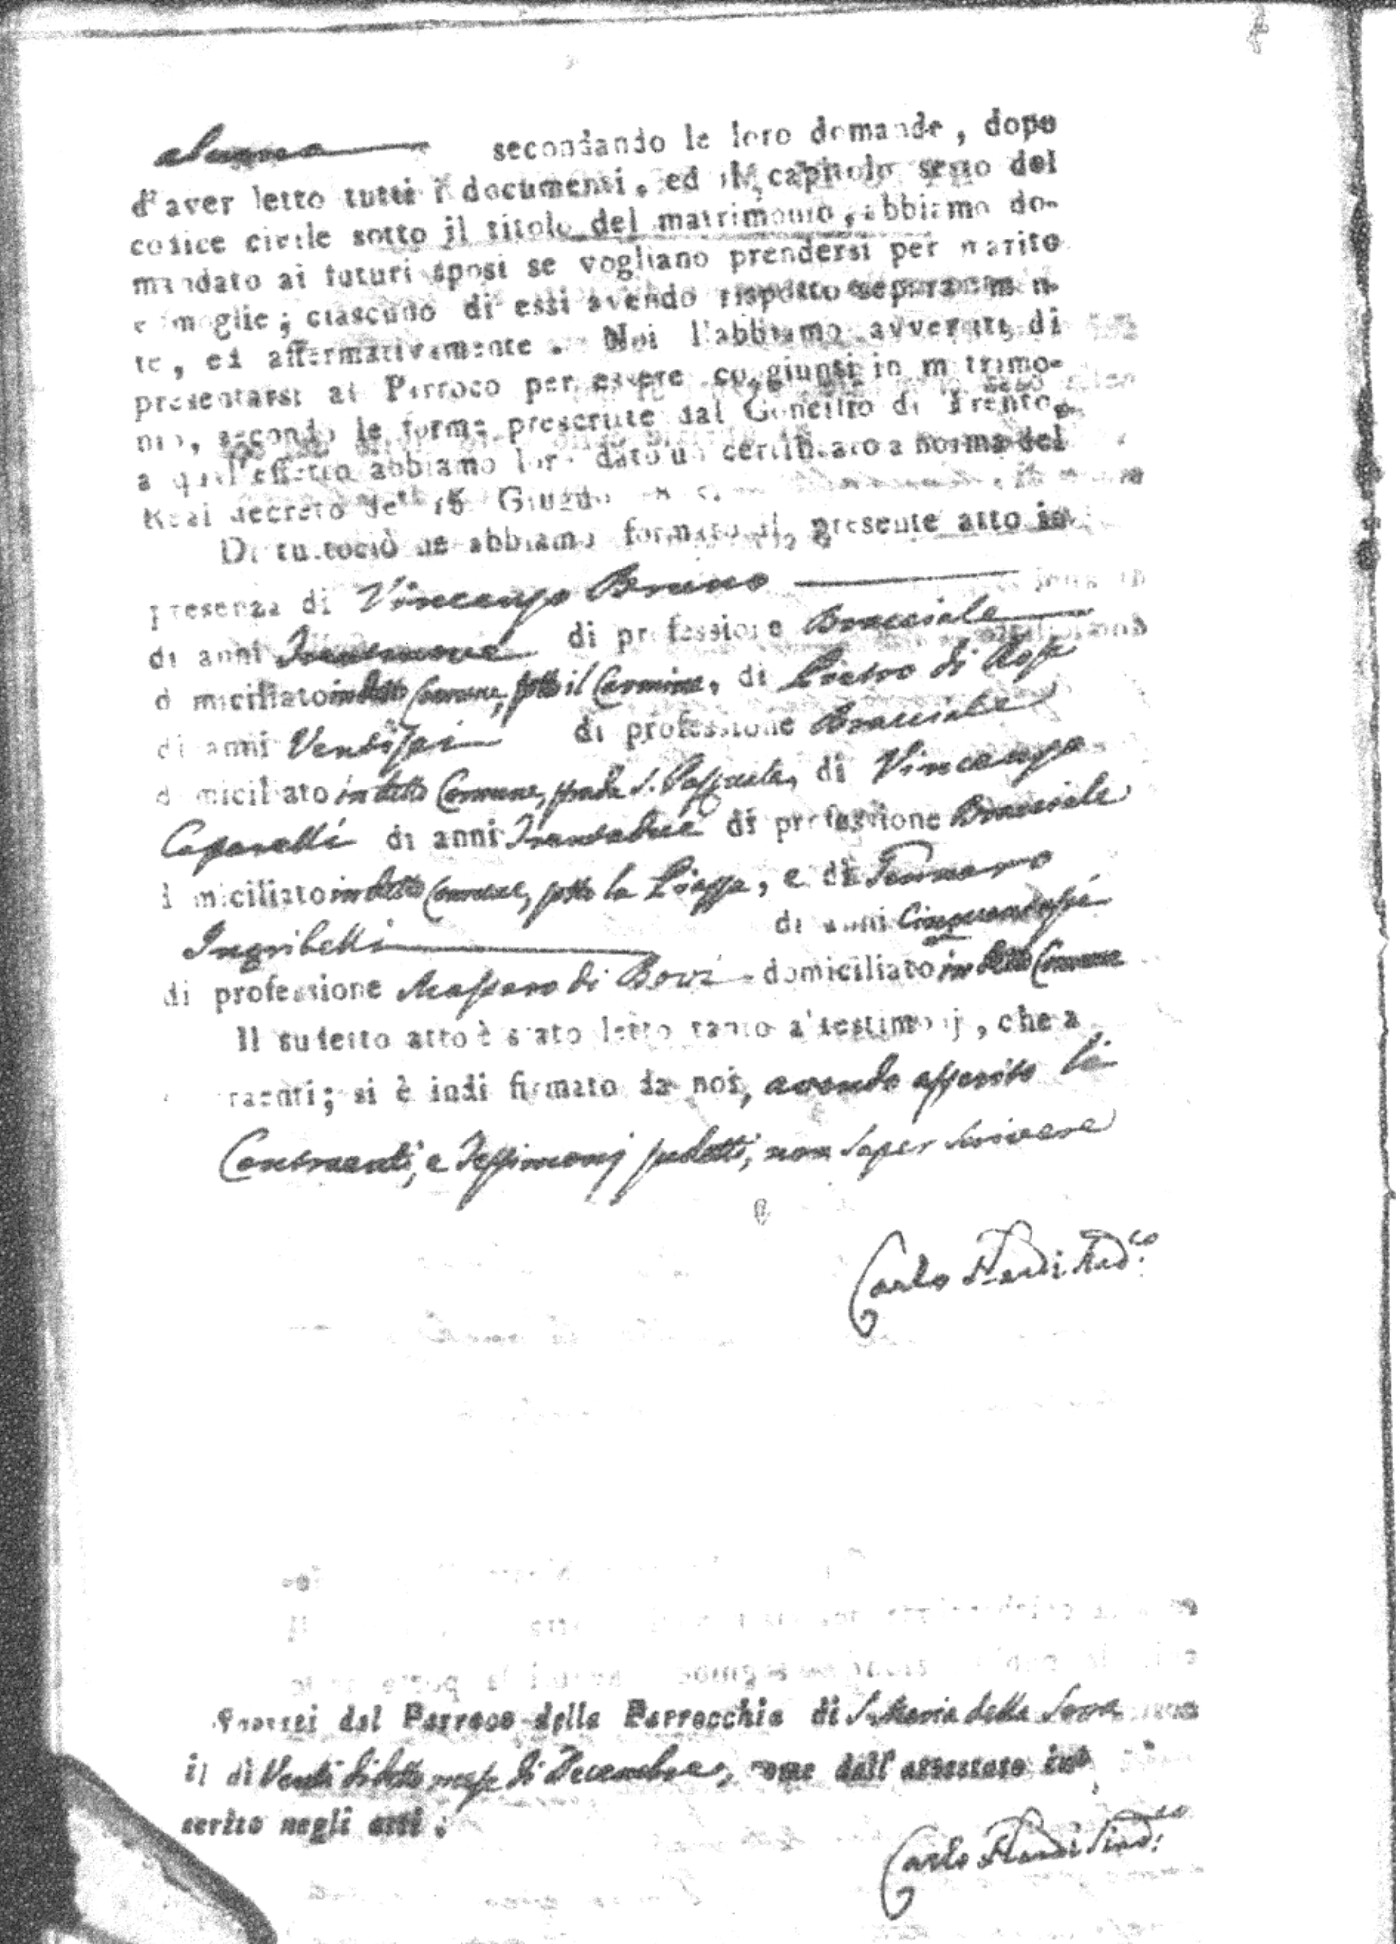 alcuna secondando le loro domande, dopo
d'aver letto tutti i documenti, ed il capitolo sesto del
codice civile sotto il titolo del matrimonio, abbiamo do-
mandato ai futuri sposi se vogliano prendersi per marito
e moglie; ciascuno di essi avendo risposto separatamen-
te, ed affermativamente. Noi l'abbiamo avvertiti di
presentarsi al Parroco per essere congiunti in matrimo-
nio, secondo le forme prescritte dal Concilio di Trento,
a quell'effetto abbiamo loro dato un certificato a norma del
Real decreto de' 16 Giugno
Di tuttociò ne abbiamo formato il presente atto in
presenza di Vincenzo Bruno
di anni Trentanove di professione Bracciale
domiciliato in detto Comune, sotto il Carmine, di Pietro di Rosa
di anni Ventisei di professione Bracciale
domiciliato in detto Comune, strada S. Pasquale, di Vincenzo
Caparelli di anni Trentadue di professione Bracciale
domiciliato in detto Comune, sotto la Piazza, e di Gennaro
Ingribelli di anni Cinquantasei
di professione Massaro di Bovi domiciliato in detto Comune
Il sudetto atto è stato letto tanto a' testimonj, che a
raenti; si è indi firmato da noi, avendo asserito li
Contraenti, e Testimonj sudetti, non saper scrivere
Carlo Sind.co
Sposati dal Parroco della Parrocchia di S. Maria della Serra
il dì Venti di detto mese di Decembre, come dall'attestato in-
serito negli atti.
Carlo Sind.co